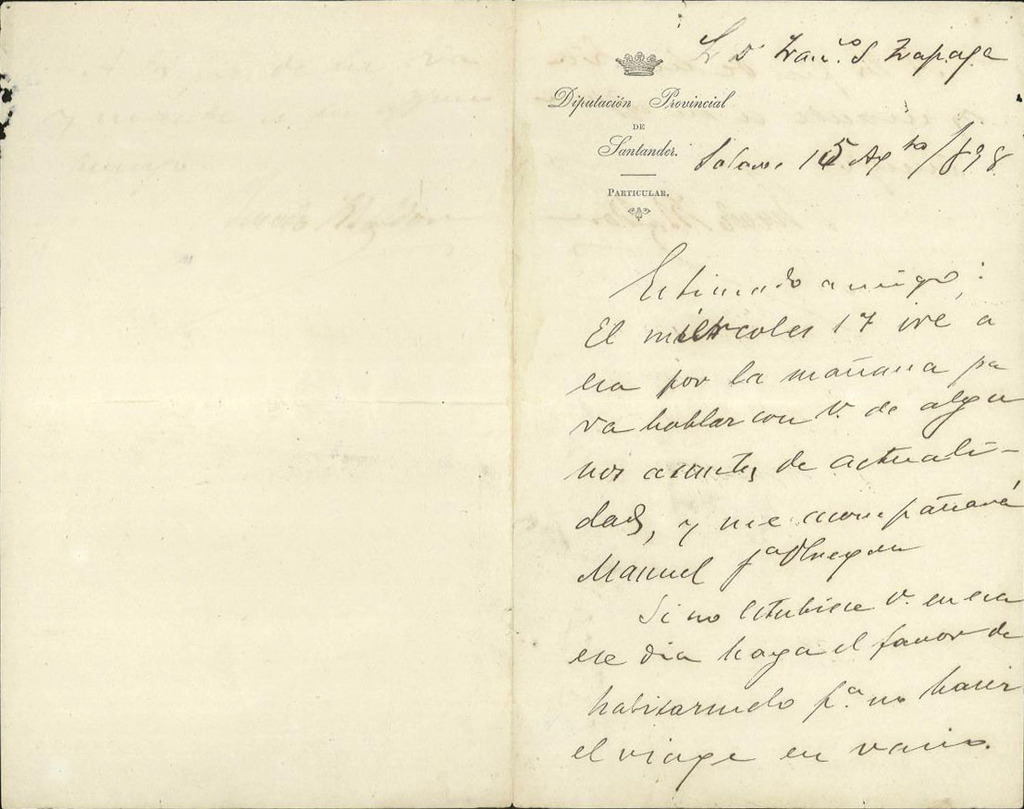 Sr Dn Franco S Trapaga
Diputación Provincial
DE
Santander.
PARTICULAR.
15 Agto/898
Estimado amigo;
El miercoles 17 iré a
esa por la mañana pa
ra hablar con V. de algu
nos asuntos de actuali-
dad, y me acompañará
Manuel
Si no estubiese V. en esa
ese dia haga el favor de
habisarmelo pa no hacer
el viage en vano.